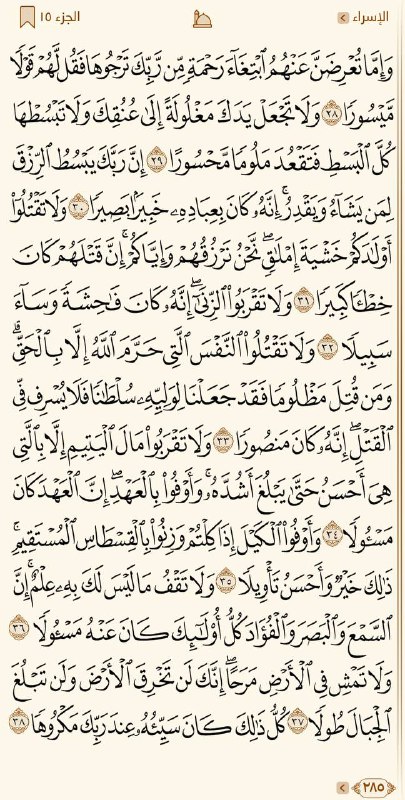 الإسراء
الجزء ١٥
وَإِمَّا تُعْرِضَنَّ عَنْهُمُ ٱبْتِغَآءَ رَحْمَةٍ مِّن رَّبِّكَ تَرْجُوهَا فَقُل لَّهُمْ قَوْلًا
مَّيْسُورًا ٢٨ وَلَا تَجْعَلْ يَدَكَ مَغْلُولَةً إِلَىٰ عُنُقِكَ وَلَا تَبْسُطْهَا
كُلَّ ٱلْبَسْطِ فَتَقْعُدَ مَلُومًا مَّحْسُورًا ٢٩ إِنَّ رَبَّكَ يَبْسُطُ ٱلرِّزْقَ
لِمَن يَشَآءُ وَيَقْدِرُ ۚ إِنَّهُۥ كَانَ بِعِبَادِهِۦ خَبِيرًۢا بَصِيرًا ٣٠ وَلَا تَقْتُلُوٓا۟
أَوْلَـٰدَكُمْ خَشْيَةَ إِمْلَـٰقٍ ۖ نَّحْنُ نَرْزُقُهُمْ وَإِيَّاكُمْ ۚ إِنَّ قَتْلَهُمْ كَانَ
خِطْـًٔا كَبِيرًا ٣١ وَلَا تَقْرَبُوا۟ ٱلزِّنَىٰٓ ۖ إِنَّهُۥ كَانَ فَـٰحِشَةً وَسَآءَ
سَبِيلًا ٣٢ وَلَا تَقْتُلُوا۟ ٱلنَّفْسَ ٱلَّتِى حَرَّمَ ٱللَّهُ إِلَّا بِٱلْحَقِّ ۗ
وَمَن قُتِلَ مَظْلُومًا فَقَدْ جَعَلْنَا لِوَلِيِّهِۦ سُلْطَـٰنًا فَلَا يُسْرِف فِّى
ٱلْقَتْلِ ۖ إِنَّهُۥ كَانَ مَنصُورًا ٣٣ وَلَا تَقْرَبُوا۟ مَالَ ٱلْيَتِيمِ إِلَّا بِٱلَّتِى
هِىَ أَحْسَنُ حَتَّىٰ يَبْلُغَ أَشُدَّهُۥ ۚ وَأَوْفُوا۟ بِٱلْعَهْدِ ۖ إِنَّ ٱلْعَهْدَ كَانَ
مَسْـُٔولًا ٣٤ وَأَوْفُوا۟ ٱلْكَيْلَ إِذَا كِلْتُمْ وَزِنُوا۟ بِٱلْقِسْطَاسِ ٱلْمُسْتَقِيمِ ۚ
ذَٰلِكَ خَيْرٌ وَأَحْسَنُ تَأْوِيلًا ٣٥ وَلَا تَقْفُ مَا لَيْسَ لَكَ بِهِۦ عِلْمٌ ۚ إِنَّ
ٱلسَّمْعَ وَٱلْبَصَرَ وَٱلْفُؤَادَ كُلُّ أُو۟لَـٰٓئِكَ كَانَ عَنْهُ مَسْـُٔولًا ٣٦
وَلَا تَمْشِ فِى ٱلْأَرْضِ مَرَحًا ۖ إِنَّكَ لَن تَخْرِقَ ٱلْأَرْضَ وَلَن تَبْلُغَ
ٱلْجِبَالَ طُولًا ٣٧ كُلُّ ذَٰلِكَ كَانَ سَيِّئُهُۥ عِندَ رَبِّكَ مَكْرُوهًا ٣٨
٢٨٥